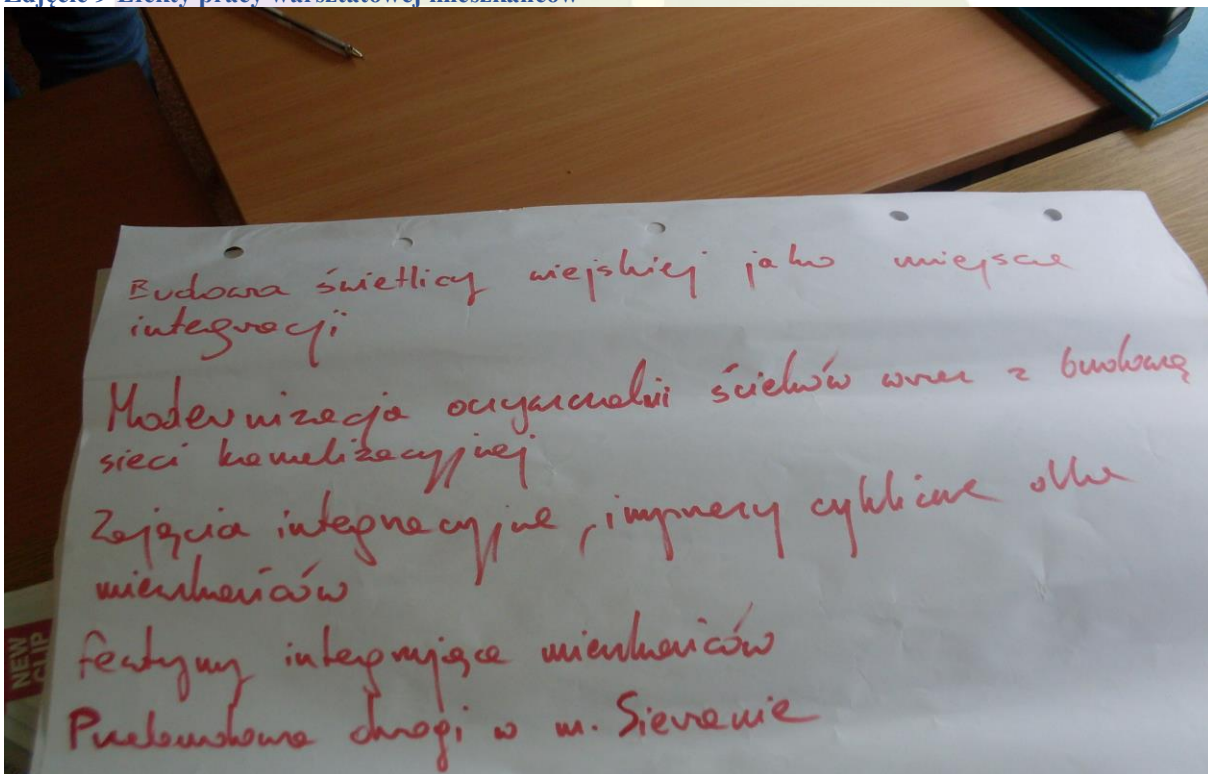 Zdjęcie 9 Efekty pracy warsztatowej mieszkańców
Budowa świetlicy wiejskiej jako miejsce
integracji
Modernizacja oczyszczalni ścieków wraz z budową
sieci kanalizacyjnej
Zajęcia integracyjne, imprezy cykliczne dla
mieszkańców
festyny integrujące mieszkańców
Przebudowa drogi w m. Sieranie
NEW
CLIP